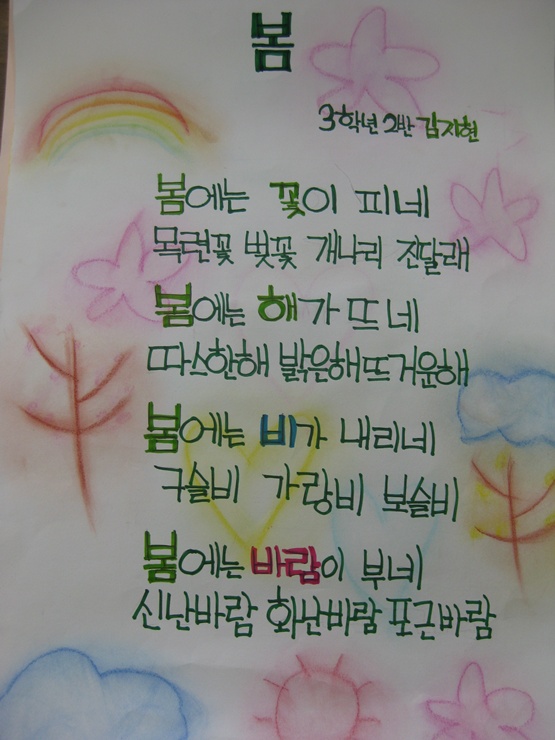 봄
3학년 2반 김지현
봄에는 꽃이 피네
목련꽃 벚꽃 개나리 진달래
봄에는 해가 뜨네
따스한해 밝은해 뜨거운해
봄에는 비가 내리네
구슬비 가랑비 보슬비
봄에는 바람이 부네
신난바람 화난바람 포근바람